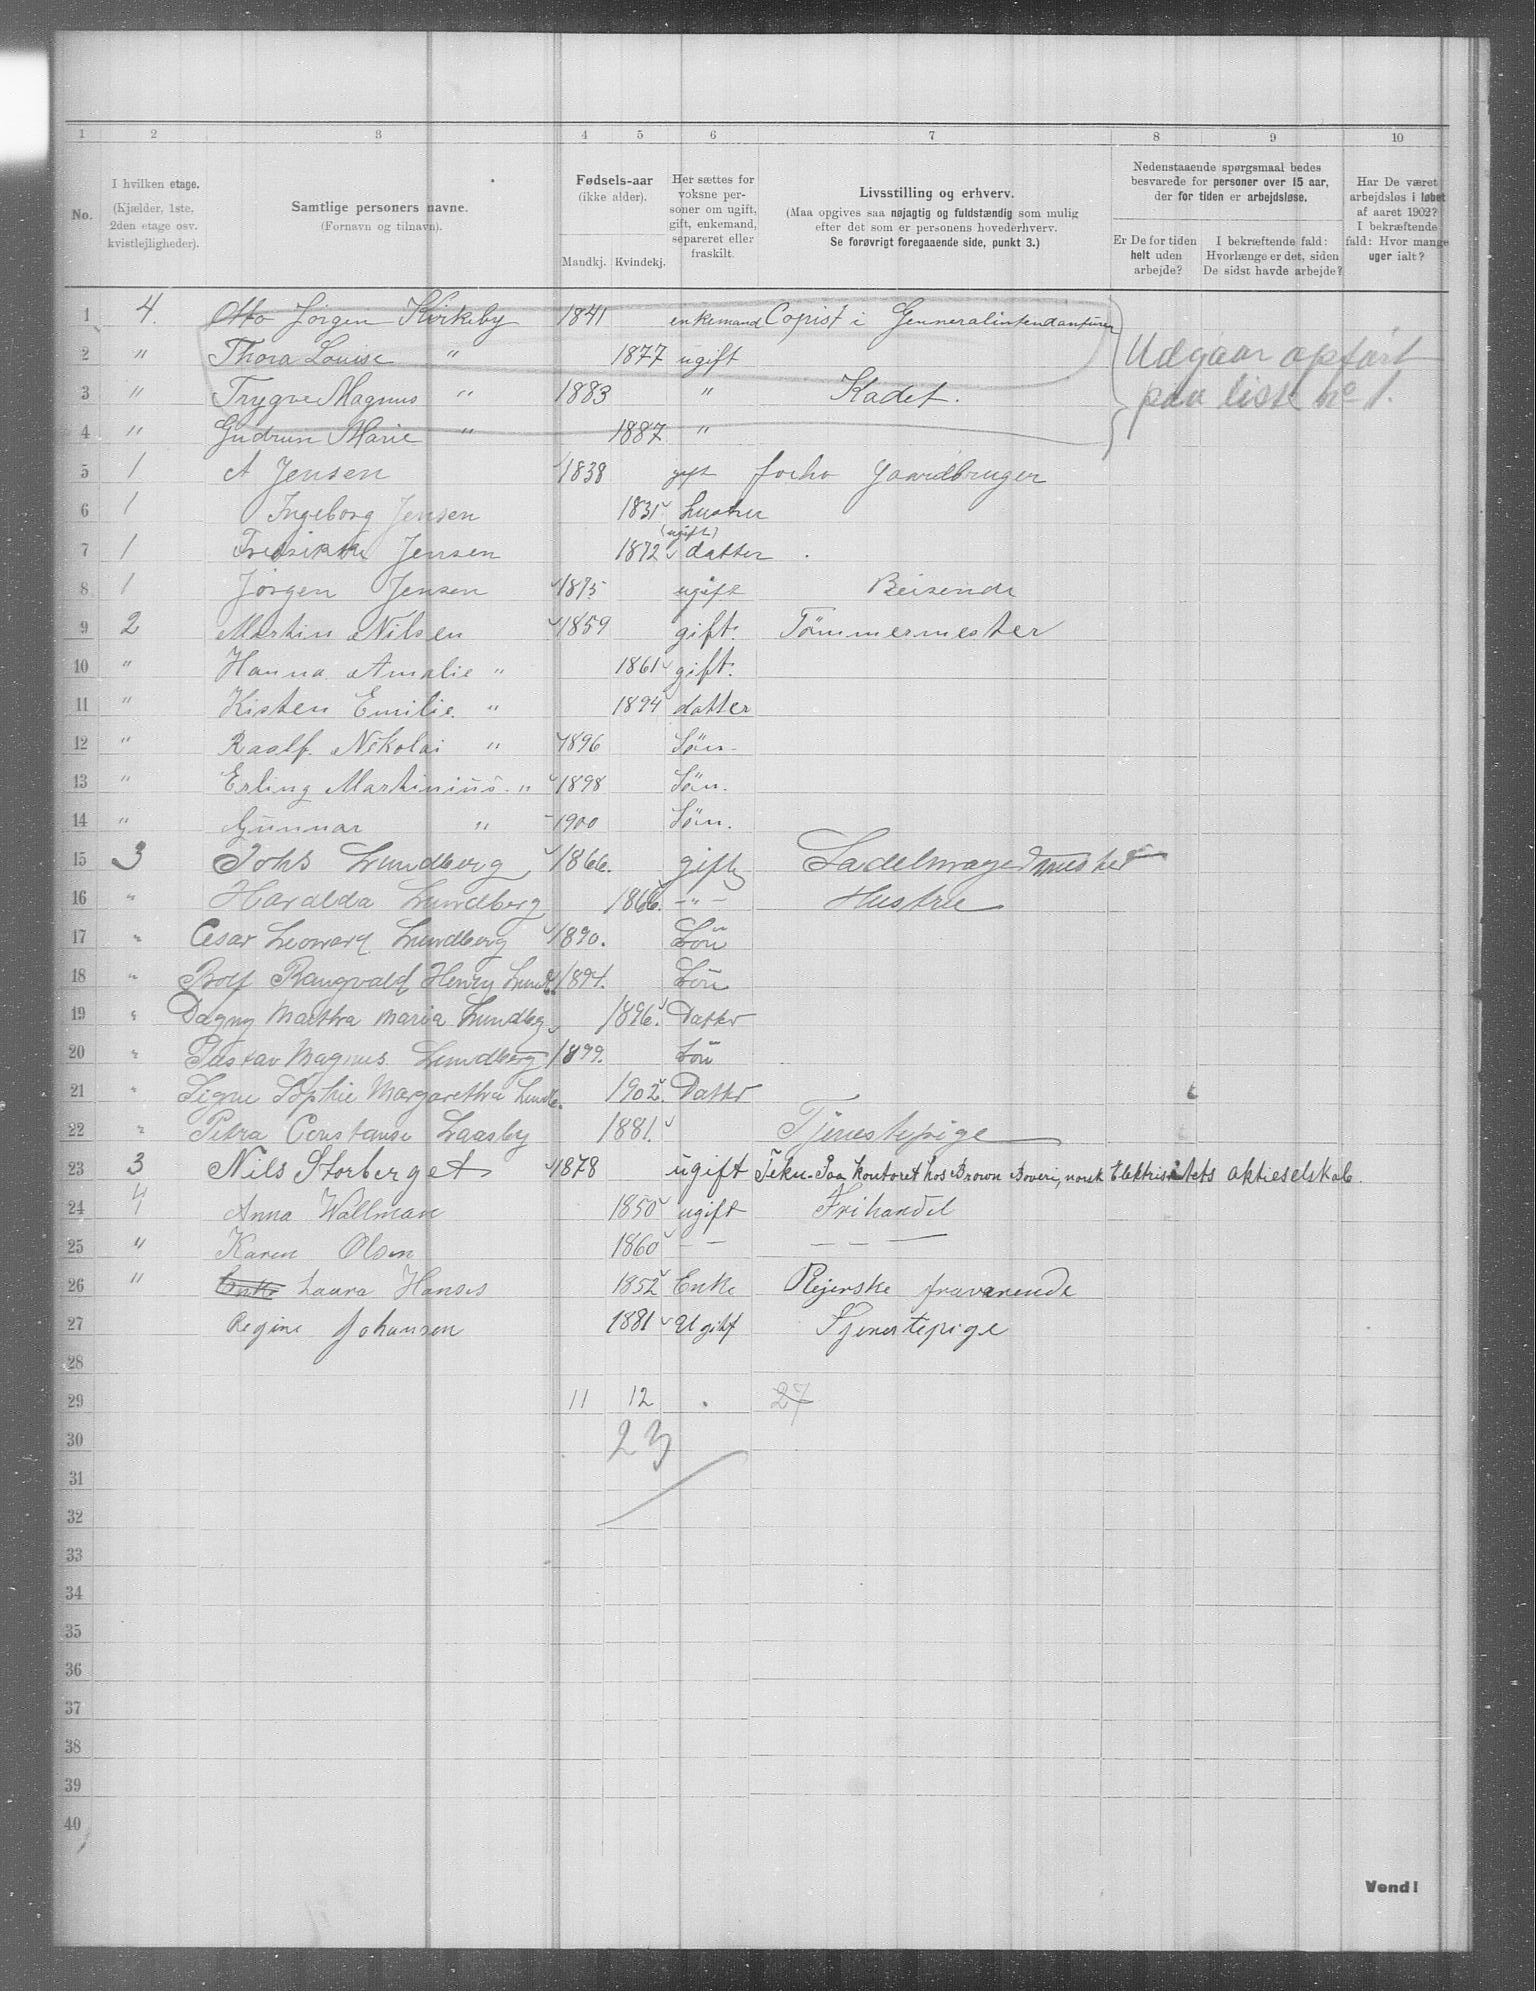 1 2 3 4 5 6 7 8 9 10
No.
I hvilken etage. (Kjælder, 1ste. 2den etage osv. kvistlejligheder).
Samtlige personers navne. (Fornavn og tilnavn).
Fødsels-aar (ikke alder).
Mandkj. Kvindekj.
Her sættes for voksne personer om ugift, gift, enkemand, separeret eller fraskilt.
Livsstilling og erhverv.
(Maa opgives saa nøjagtig og fuldstændig som mulig efter det som er personens hovederhverv. Se forøvrigt foregaaende side, punkt 3.)
Nedenstaaende spørgsmaal bedes besvarede for personer over 15 aar, der for tiden er arbejdsløse.
Er De for tiden helt uden arbejde?
I bekræftende fald: Hvorlænge er det, siden De sidst havde arbejde?
Har De været arbejdsløs i løbet af aaret 1902? I bekræftende fald: Hvor mange uger ialt?
1 4. Otto Jörgen Kirkeby 1841 enkemand Copist i Genneralintendanturen
2 " Thora Louise " 1877 ugift
Udgaar opført
3 " Trygve Magnus " 1883 " Kadet.
paa liste No 1.
4 " Gudrun Marie " 1887 "
5 1 A Jensen 1838 gift forhv Gaardbruger
6 1 Ingeborg Jensen 1831 hustru
7 1 Fredrikke Jensen 1872 (ugift) datter
8 1 Jörgen Jensen 1875 ugift Reisende
9 2 Martin Nilsen 1859 gift. Tömmermester
10 " Hanna Amalie " 1861 gift.
11 " Kisten Emilie " 1894 datter
12 " Raalf Nikolai " 1896 Sön
13 " Erling Martinius " 1898 Sön.
14 " Gunnar " 1900 Sön.
15 3 Johs Lundberg 1866. gift Sadelmagermester
16 " Haralda Lundberg 1866. -"- Hustru
17 " Cesar Leonard Lundberg 1890. Sön
18 " Rolf Rangvald Henry Lundb. 1894. Sön
19 " Dagny Martha Maria Lundbeg 1896. Datter
20 " Gustav Magnus Lundberg 1899. Sön
21 " Signe Sophie Margarethe Lundb. 1902. Datter
22 " Petra Constanse Laasby 1881. Tjenestepige
23 3 Nils Storberget 1878 ugift Tekn. Paa kontoret hos Brown Boveri, norsk Elektrisitets aktieselskab.
24 4 Anna Wallman 1850 ugift Frihandel
25 " Karen Olsen 1860 — — — — —
26 " Enke Laura Hanses 1852 Enke Rejerske fraværende
27 Regine Johansen 1881 Ugift Tjenestepige
28
29 11 12 27
30 23
31
32
33
34
35
36
37
38
39
40
Vend!